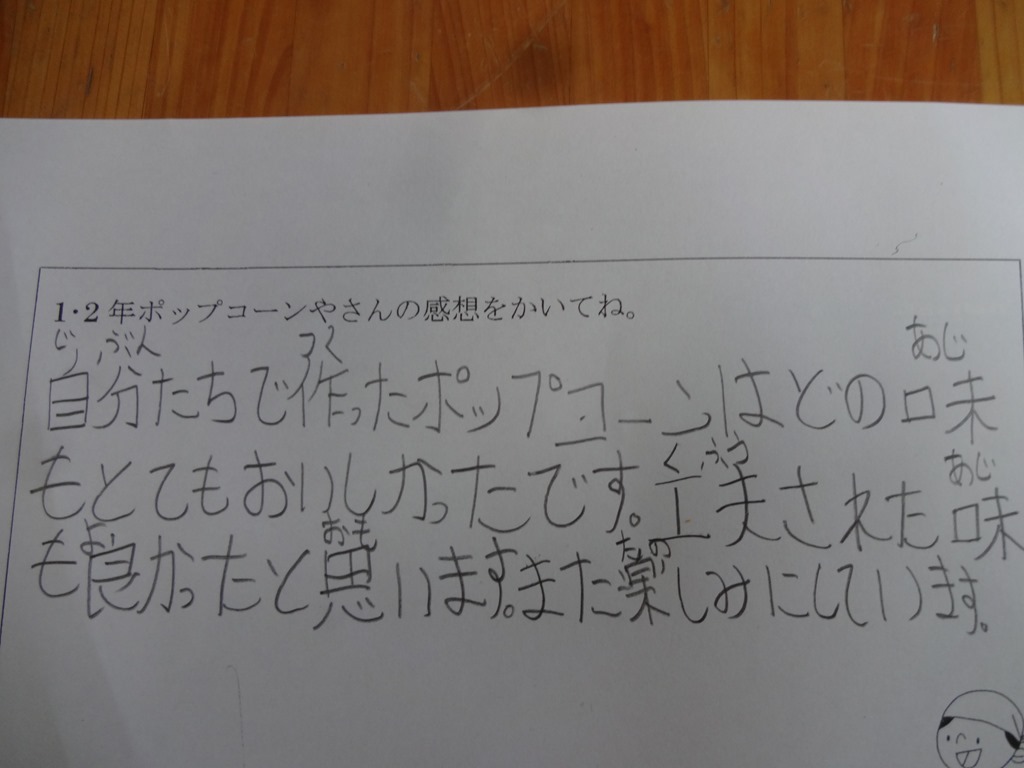 1・2年ポップコーンやさんの感想をかいてね。
じぶん つく あじ
自分たちで作ったポップコーンはどの味
くふう あじ
もとてもおいしかったです。工夫された味
よ おも たの
も良かったと思います。また楽しみにしています。